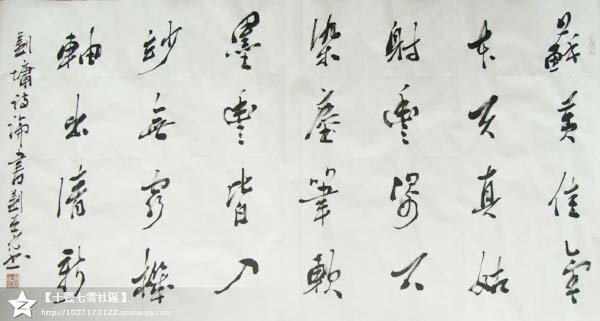 蘇黃佳氣
本天真姑
射豐姿不
染塵筆軟
墨豐皆入
妙無窮機
軸出清新
劉墉詩論書劉
【十雲七雪社區】
http://1037172122.qzone.qq.com/